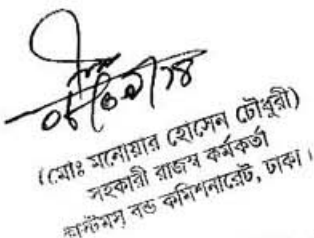 (মোঃ মনোয়ার হোসেন চৌধুরী)
সহকারী রাজস্ব কর্মকর্তা
কাস্টমস্ বন্ড কমিশনারেট, ঢাকা।